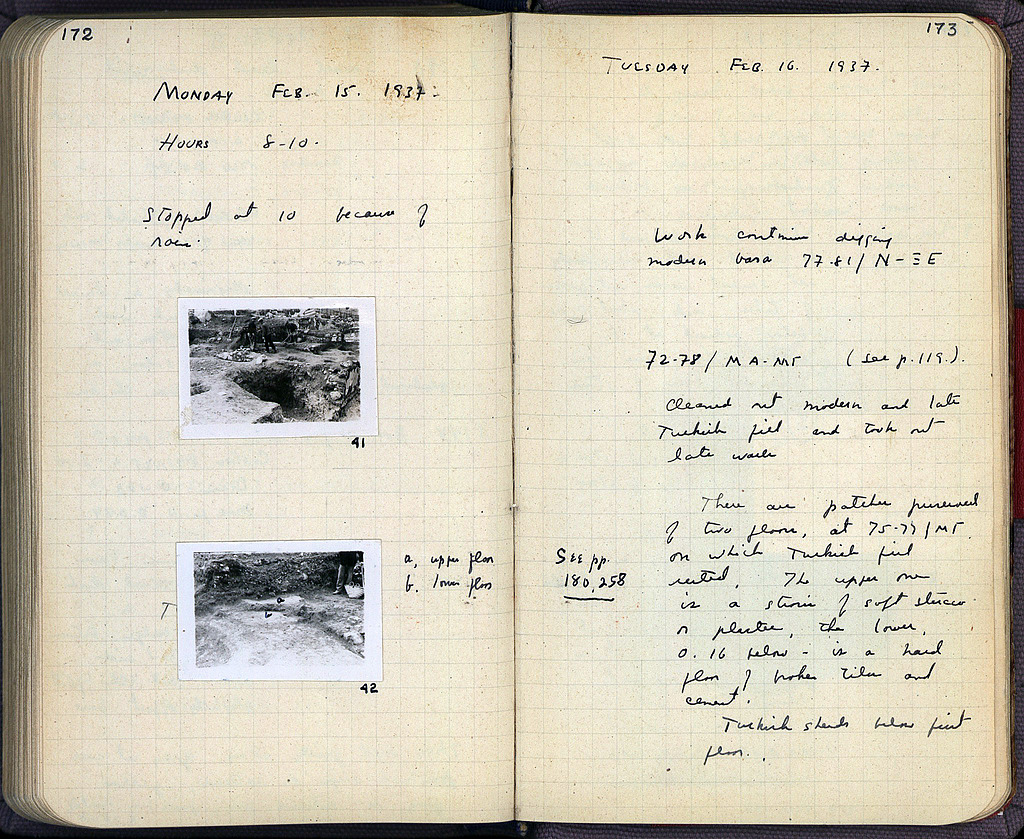 172
MONDAY FEB. 15. 1937.
HOURS 8-10.
Stopped at 10 because of
rain.
41
a, upper floor
b. lower floor
a
b
T
42
173
TUESDAY FEB. 16. 1937.
Work continues digging
modern 77-81/N-ΞE
72-78/MA-MΓ (see p.119.).
Cleaned out modern and late
Turkish fill and took out
late walls
There are patches preserved
of two floors, at 75-77/MΓ
on which Turkish fill
rested. The upper one
See pp.
180,258
is a strosis of soft stucco
or plaster, the lower,
0.16 below - is a hard
floor of broken tiles and
cement.
Turkish sherds below first
floor.